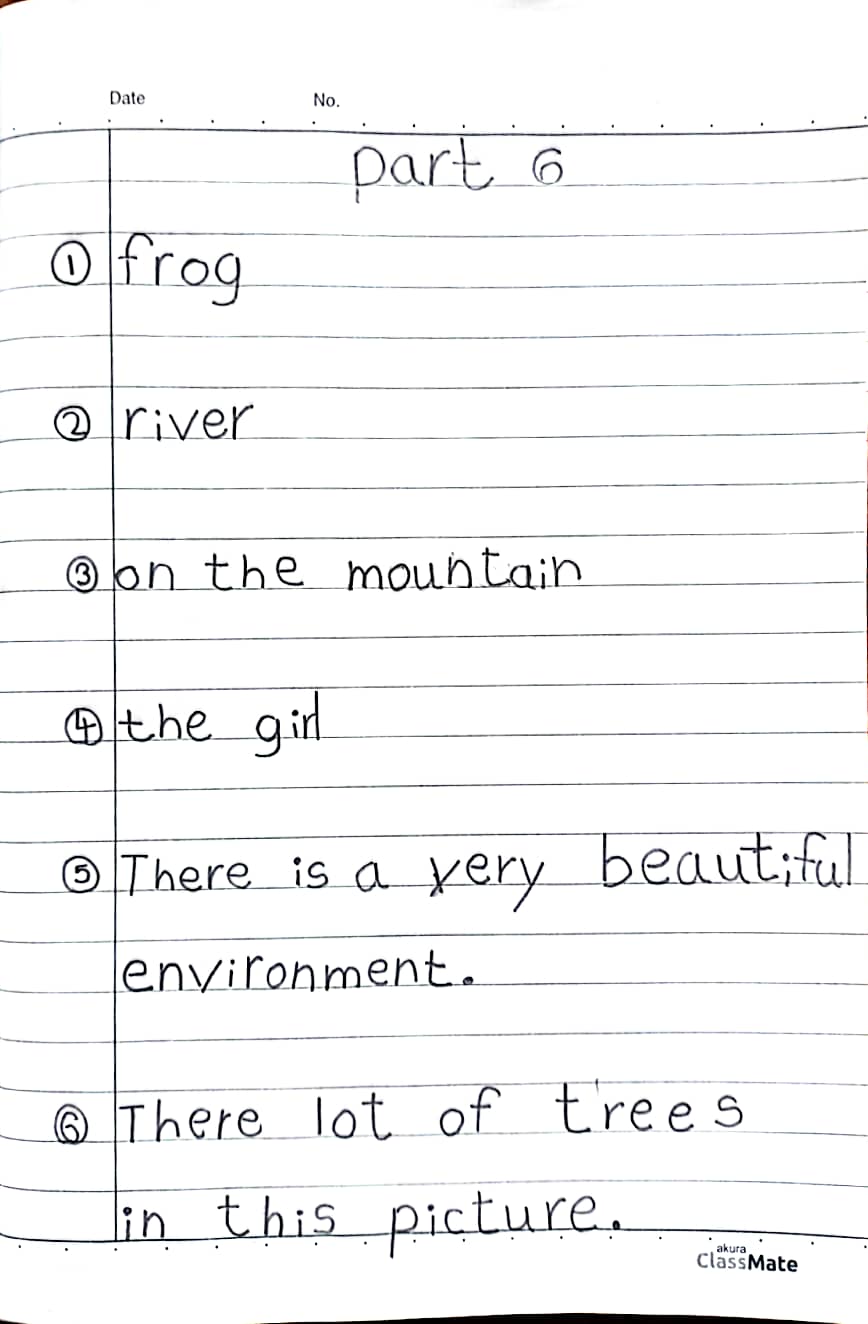 Date No.
part 6
① frog
② river
③ on the mountain
④ the girl
⑤ There is a very beautiful
environment.
⑥ There lot of trees
in this picture.
akura
ClassMate